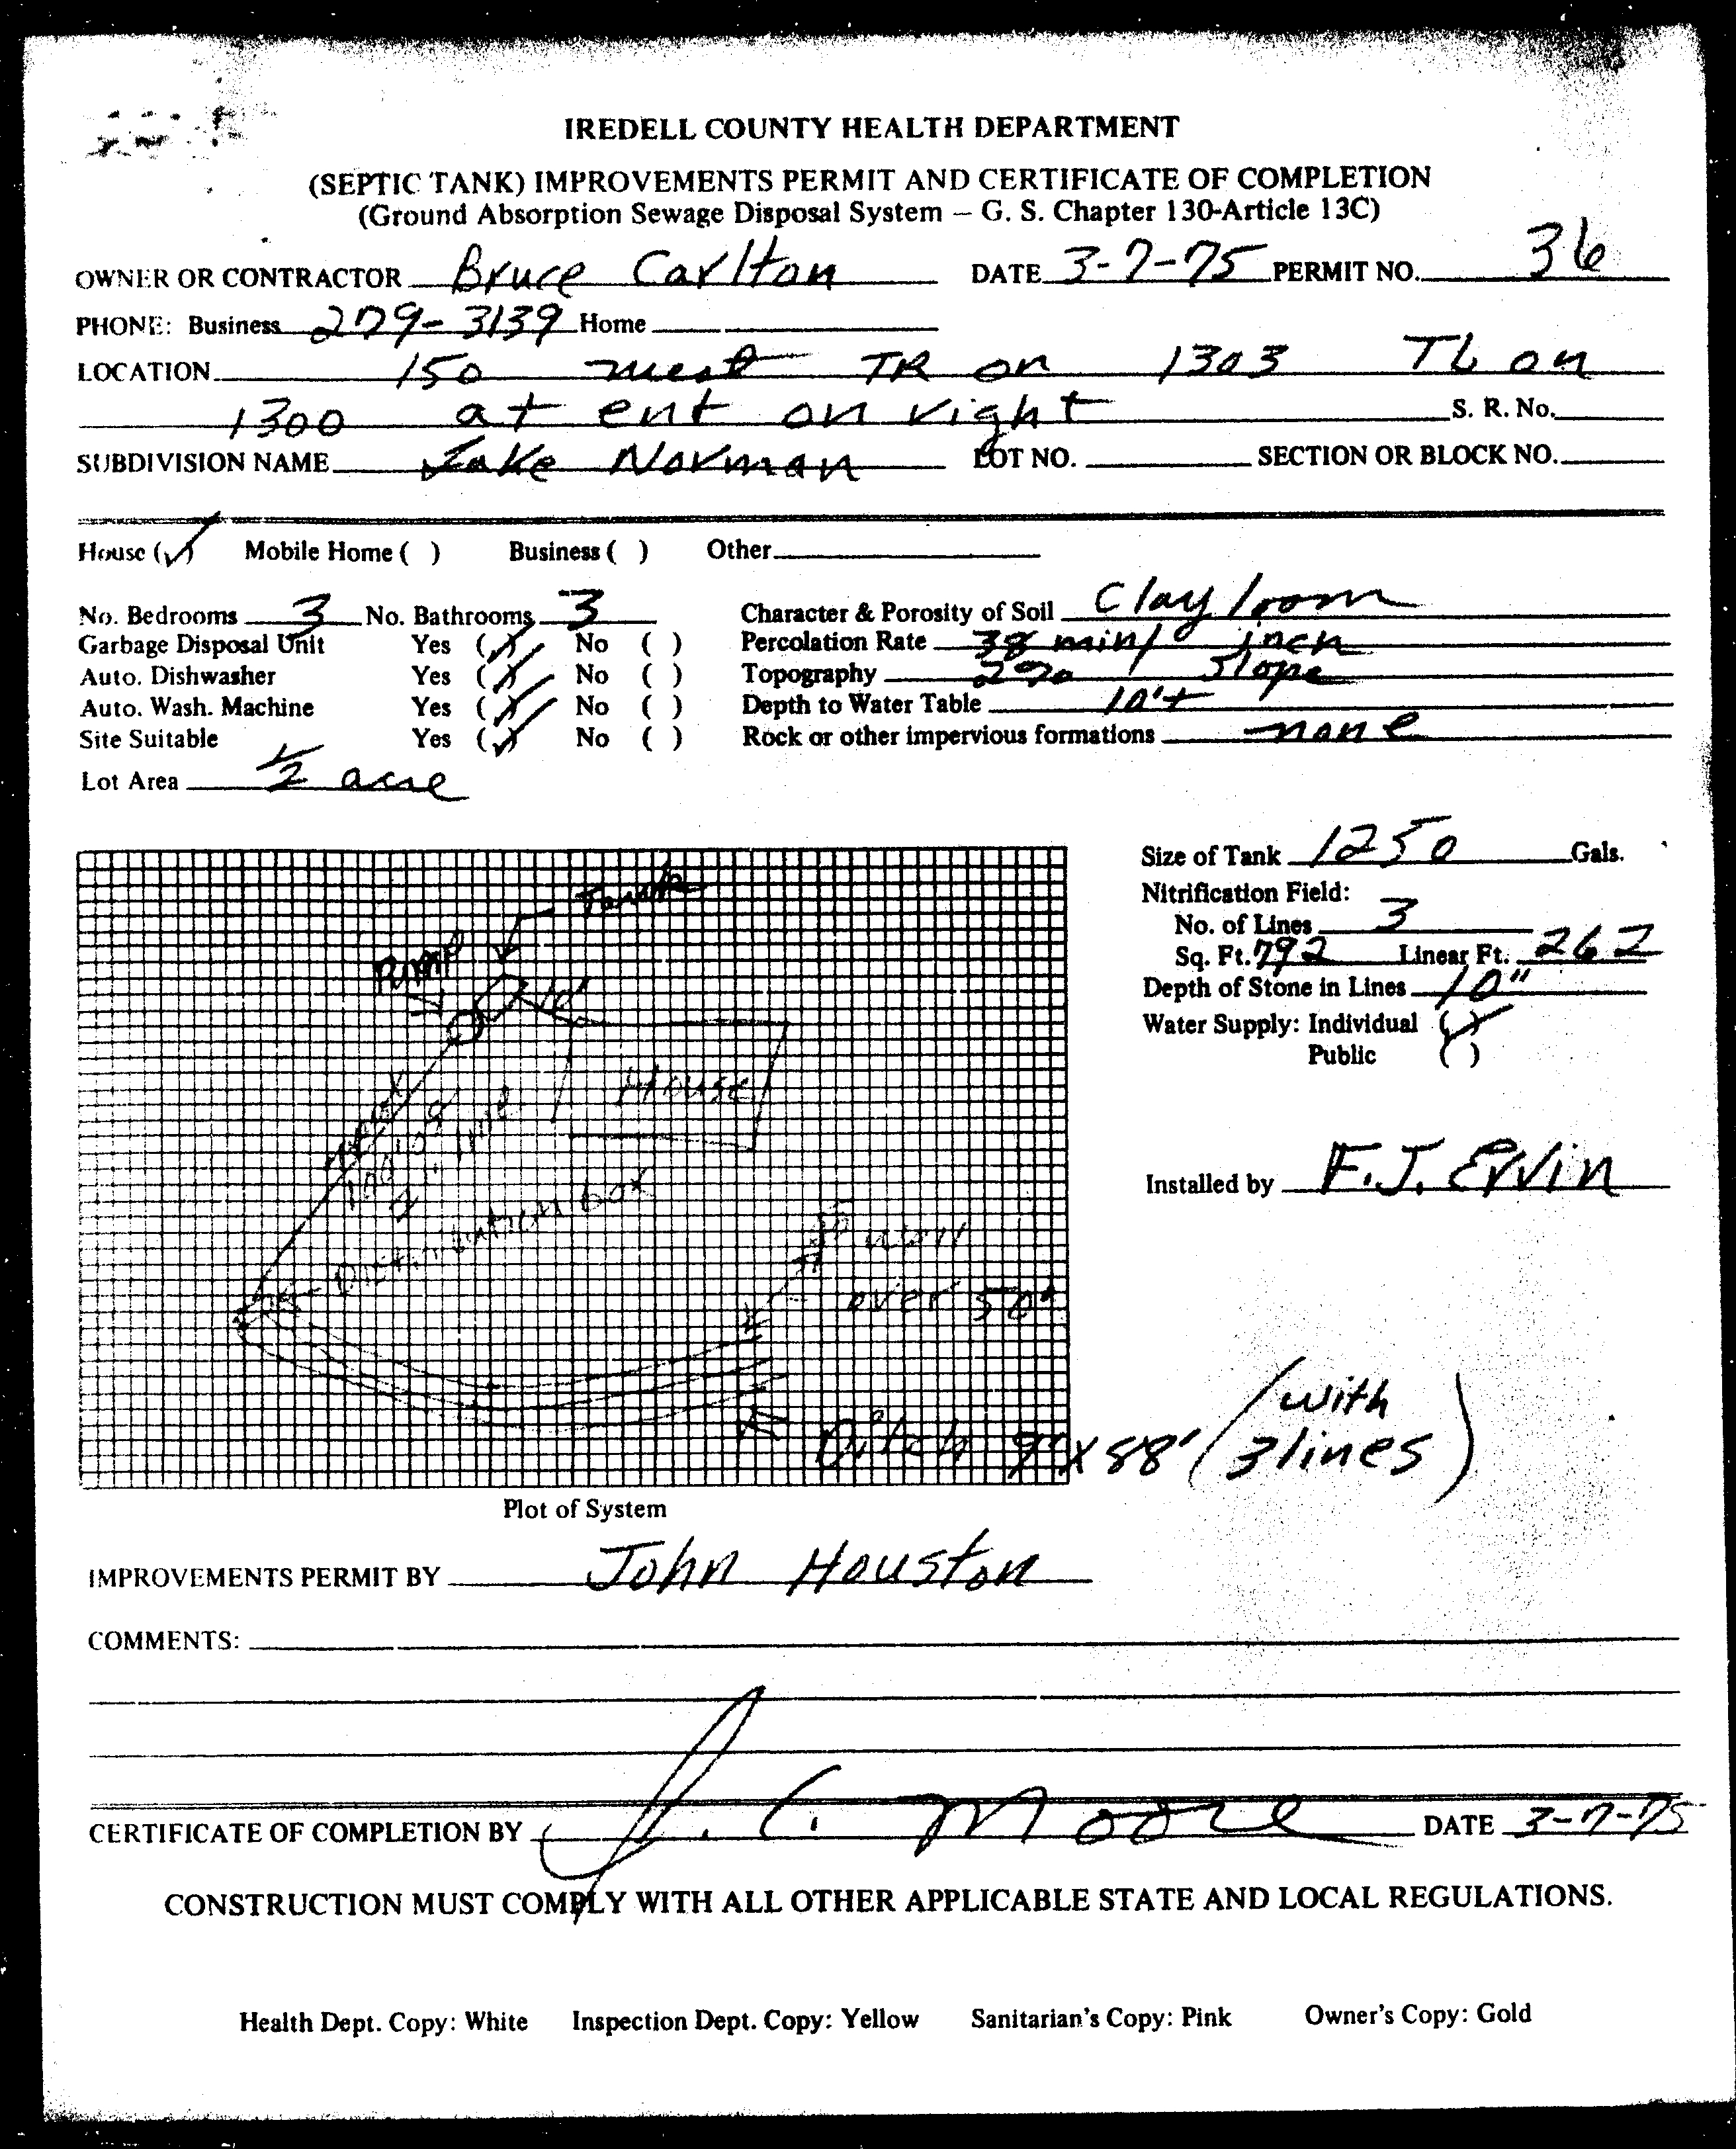 IREDELL COUNTY HEALTH DEPARTMENT
(SEPTIC TANK) IMPROVEMENTS PERMIT AND CERTIFICATE OF COMPLETION
(Ground Absorption Sewage Disposal System — G. S. Chapter 130-Article 13C)
OWNER OR CONTRACTOR Bruce Carlton DATE 3-7-75 PERMIT NO. 36
PHONE: Business 279-3139 Home
LOCATION 150 west TR on 1303 TL on
1300 at ent on right S. R. No.
SUBDIVISION NAME Lake Norman LOT NO. SECTION OR BLOCK NO.
House (✓) Mobile Home ( ) Business ( ) Other
No. Bedrooms 3 No. Bathrooms 3 Character & Porosity of Soil Clay loom
Garbage Disposal Unit Yes (✓) No ( ) Percolation Rate 38 min/ inch
Auto. Dishwasher Yes (✓) No ( ) Topography 2% Slope
Auto. Wash. Machine Yes (✓) No ( ) Depth to Water Table 10'+
Site Suitable Yes (✓) No ( ) Rock or other impervious formations none
Lot Area 1/2 acre
Size of Tank 1250 Gals.
Nitrification Field:
No. of Lines 3
Sq. Ft. 792 Linear Ft. 262
Depth of Stone in Lines 10"
Water Supply: Individual (✓)
Public ( )
Installed by F.J. Ervin
Tank
Pump
10'
House
2" line
Distribution box
over 50'
Ditch 9" X 88' (with
3 lines)
Plot of System
IMPROVEMENTS PERMIT BY John Houston
COMMENTS:
CERTIFICATE OF COMPLETION BY J. C. Moore DATE 3-7-75
CONSTRUCTION MUST COMPLY WITH ALL OTHER APPLICABLE STATE AND LOCAL REGULATIONS.
Health Dept. Copy: White Inspection Dept. Copy: Yellow Sanitarian's Copy: Pink Owner's Copy: Gold